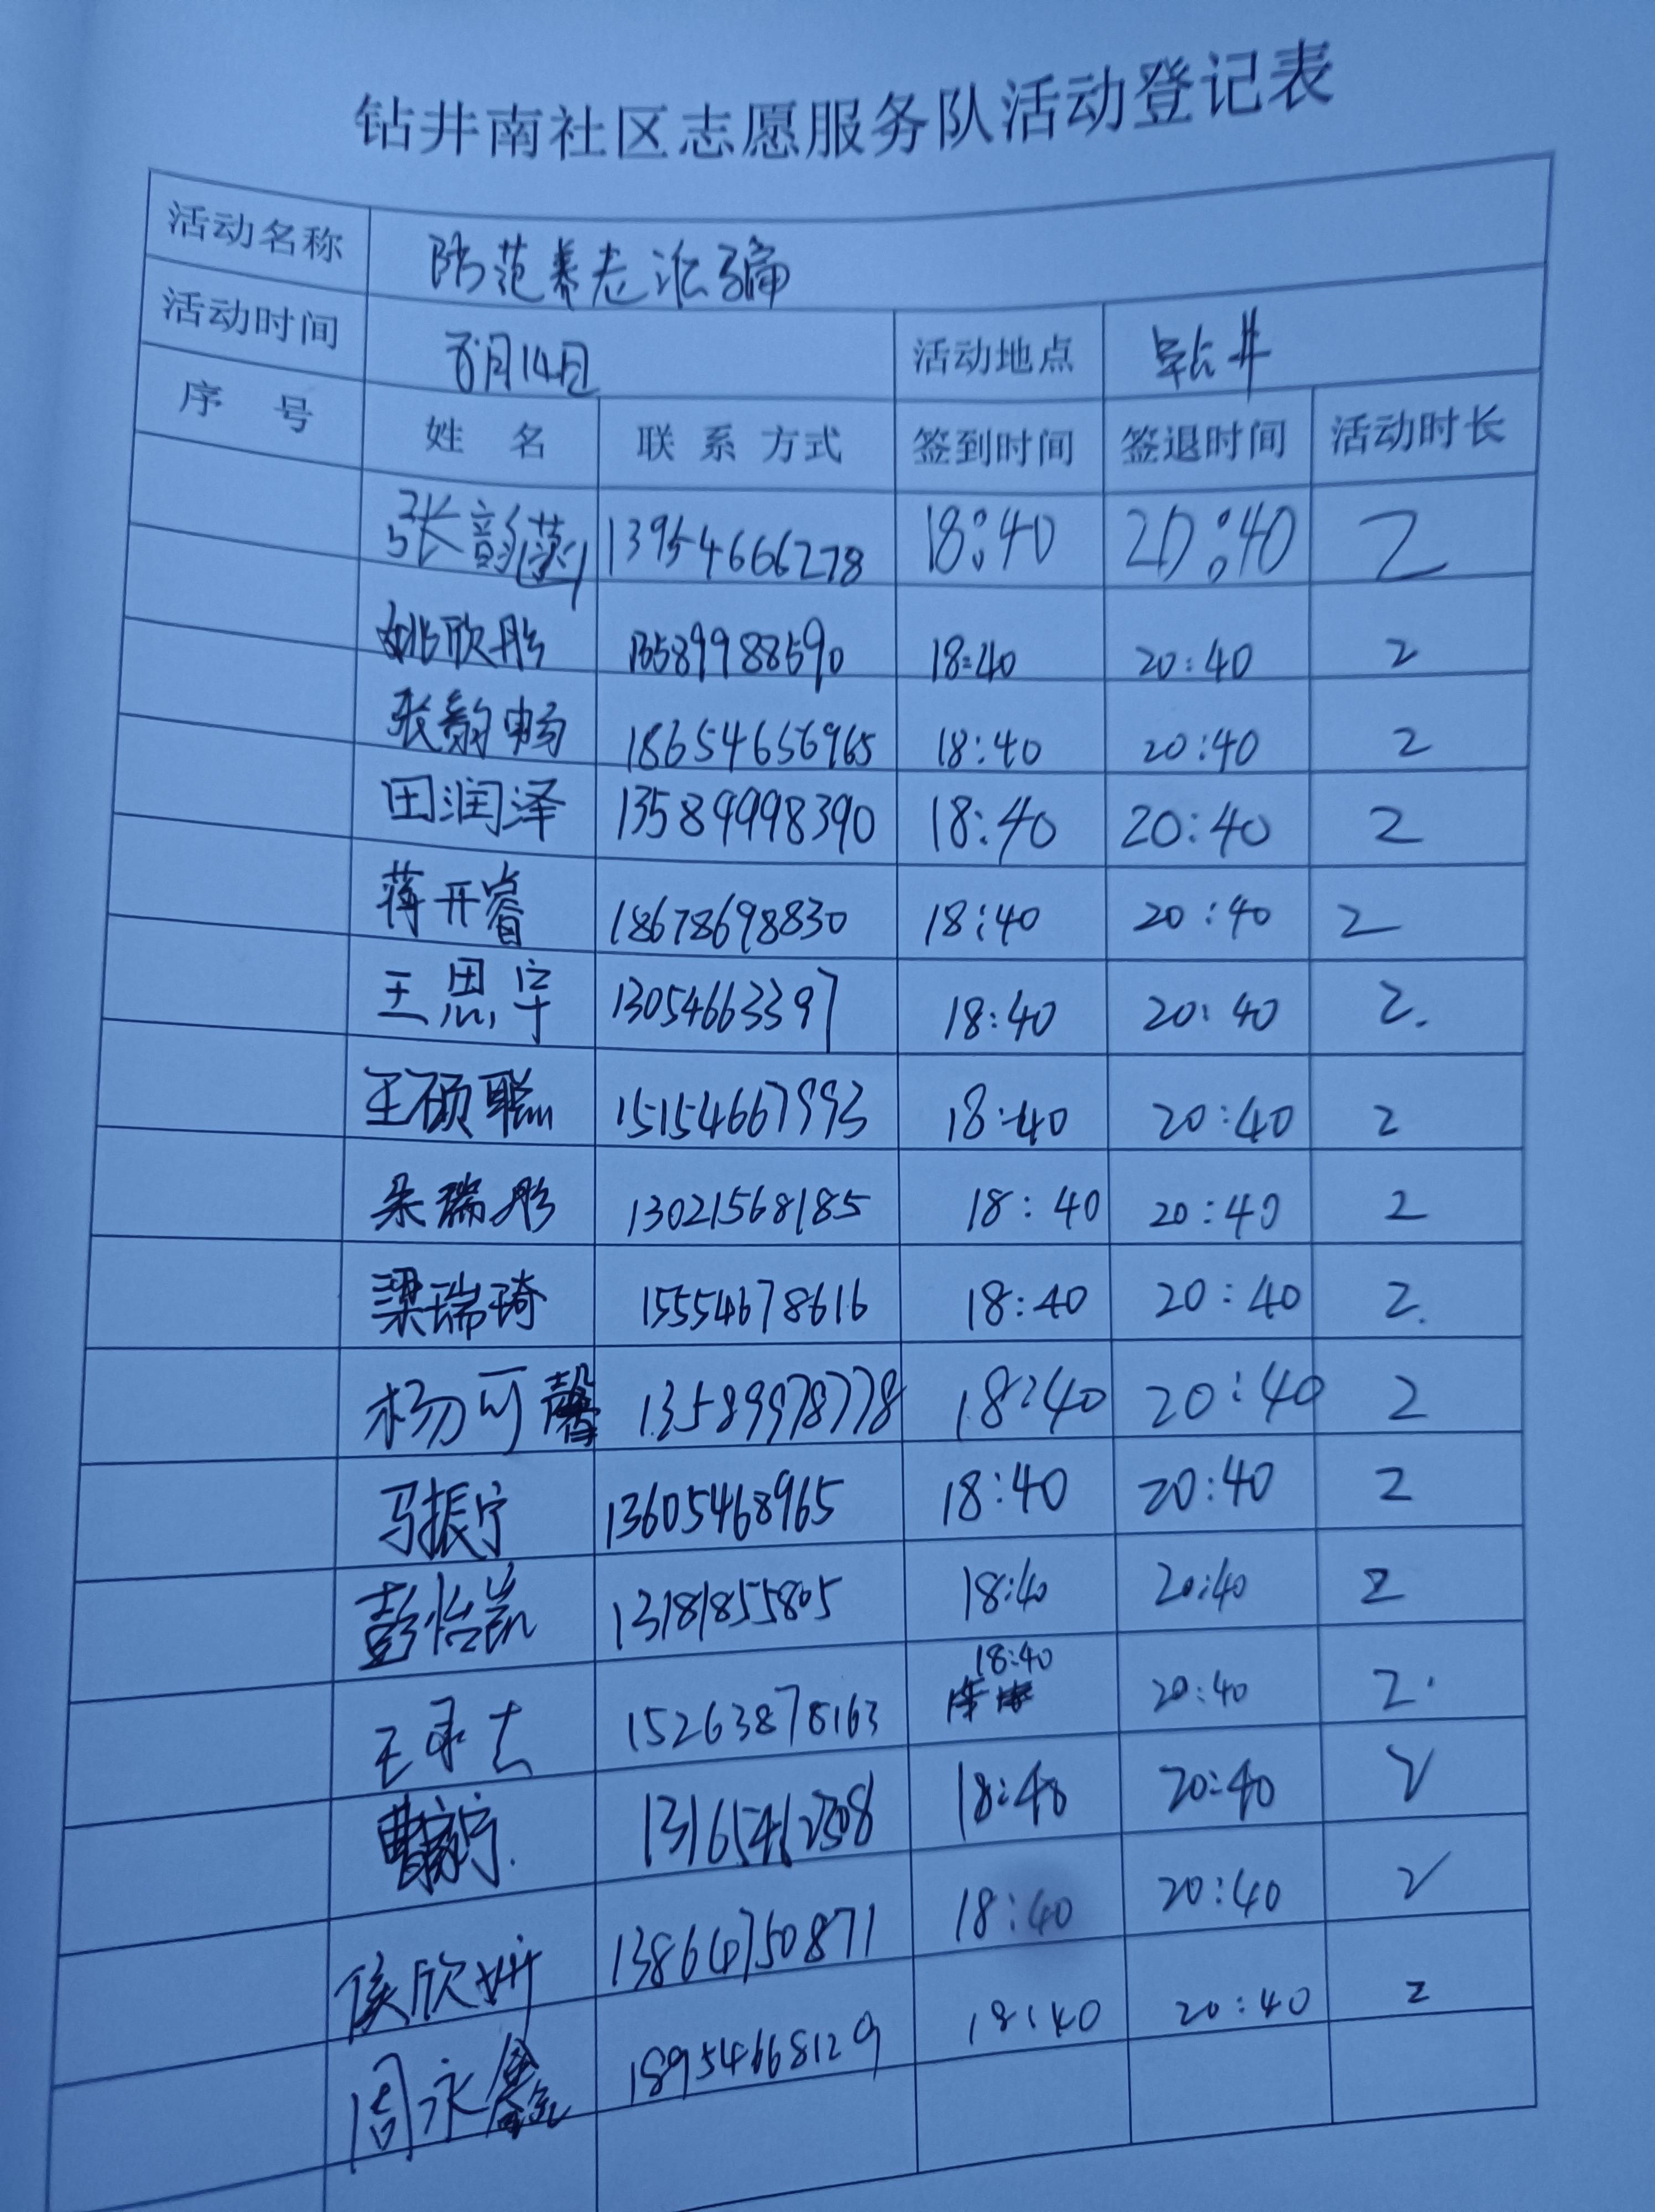 钻井南社区志愿服务队活动登记表
活动名称 防范养老诈骗
活动时间 8月14日 活动地点 钻井
序号 姓名 联系方式 签到时间 签退时间 活动时长
张韵 13954666278 18:40 20:40 2
姚欣彤 13589988590 18:40 20:40 2
张韵畅 18654656965 18:40 20:40 2
田润泽 13589998390 18:40 20:40 2
蒋开睿 18678698830 18:40 20:40 2
王思宇 13054663397 18:40 20:40 2.
王硕聪 15154667993 18:40 20:40 2
朱瑞彤 13021568185 18:40 20:40 2
梁瑞琦 15554678616 18:40 20:40 2.
杨可馨 13589978778 18:40 20:40 2
马振宁 13605468965 18:40 20:40 2
彭怡凯 13181855805 18:40 20:40 2
王 15263878163 18:40 20:40 2.
曹 宁 18:40 20:40 2
侯欣妍 13864750871 18:40 20:40 2
周永鑫 18954668129 18:40 20:40 2